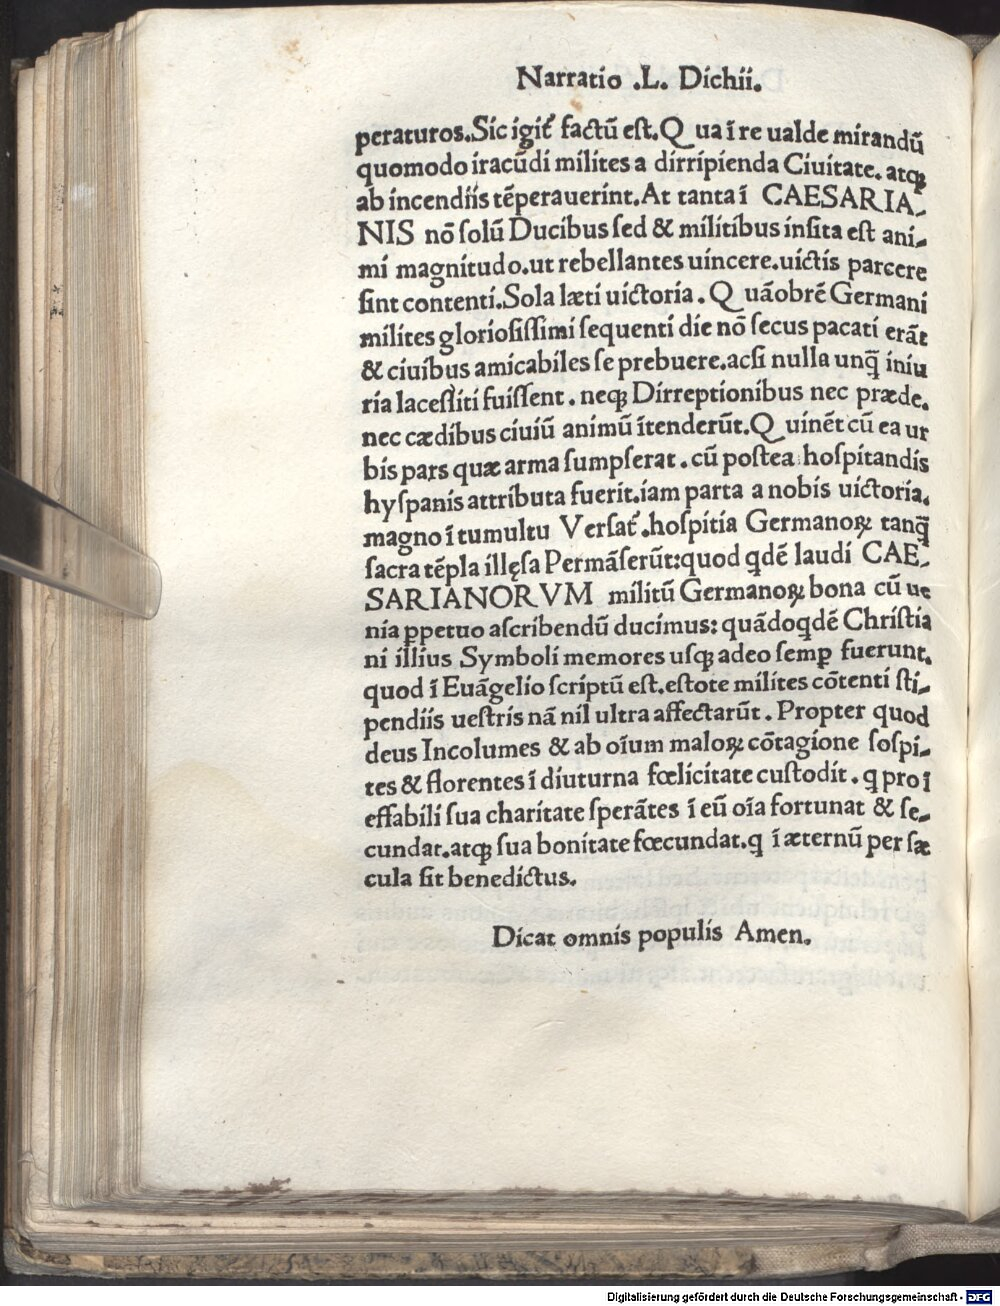 Narratio .L. Dichii.
peraturos.Sic igit᷑ factū est.Q ua ī re ualde mirandū
quomodo iracūdi milites a dirripienda Ciuitate. atqꝫ
ab incendiis tēperauerint.At tanta ī CAESARIA⸗
NIS nō solū Ducibus sed & militibus insita est ani⸗
mi magnitudo.ut rebellantes uincere.uictis parcere
sint contenti.Sola læti uictoria. Q uāobrē Germani
milites gloriosissimi sequenti die nō secus pacati erāt
& ciuibus amicabiles se prebuere.acsi nulla unq̄ iniu
ria lacessiti fuissent. neqꝫ Dirreptionibus nec præde.
nec cædibus ciuiū animū ītenderūt.Q uinēt cū ea ur
bis pars quæ arma sumpserat. cū postea hospitandis
hyspanis attributa fuerit.iam parta a nobis uictoria.
magno ī tumultu Versat᷑.hospitia Germanoꝝ tanq̄
sacra tēpla illęsa Permāserūt:quod qdē laudi CAE⸗
SARIANORVM militū Germanoꝝ bona cū ue
nia ꝑpetuo ascribendū ducimus: quādoqdē Christia
ni illius Symboli memores usqꝫ adeo semꝑ fuerunt.
quod ī Euāgelio scriptū est.estote milites cōtenti sti⸗
pendiis uestris nā nil ultra affectarūt. Propter quod
deus Incolumes & ab oīum maloꝝ cōtagione sospi⸗
tes & florentes ī diuturna fœlicitate custodit. q pro ī
effabili sua charitate sperātes ī eū oīa fortunat & se⸗
cundat.atqꝫ sua bonitate fœcundat.q ī æternū per sæ
cula sit benedictus.
Dicat omnis populis Amen.
Digitalisierung gefördert durch die Deutsche Forschungsgemeinschaft - DFG